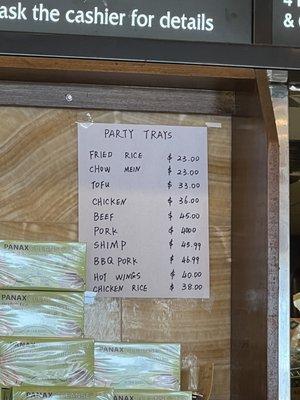 ask the cashier for details
PARTY TRAYS
FRIED RICE $ 23.00
CHOW MEIN $ 23.00
TOFU $ 33.00
CHICKEN $ 36.00
BEEF $ 45.00
PORK $
SHIMP $ 45.99
BBQ PORK $ 46.99
HOT WINGS $ 40.00
CHICKEN RICE $ 38.00
PANAX
PANAX
PANAX
PANAX
PANAX
PANAX